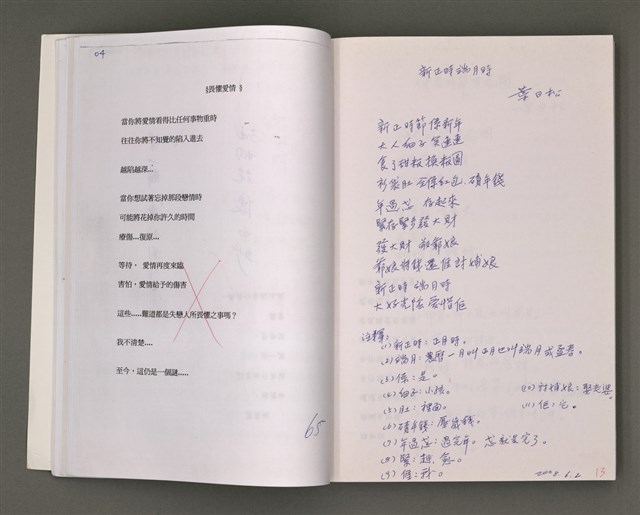 04
§畏懼愛情§
當你將愛情看得比任何事物重時
往往你將不知覺的陷入進去
越陷越深...
當你想試著忘掉那段戀情時
可能將花掉你許久的時間
療傷...復原...
等待，愛情再度來臨
害怕，愛情給予的傷害
這些.....難道都是失戀人所畏懼之事嗎？
我不清楚....
至今，這仍是一個謎.....
65
新正時端月時
葉日松
新正時節係新年
大人細子笑連連
食了甜粄換粄圓
衫袋肚 紅包 磧年錢
年過忒 存起來
緊存緊多發大財
發大財 爺娘
爺娘將錢還 討晡娘
新正時 端月時
大好光陰愛惜佢
注釋：
(1) 新正時：正月時。
(2) 端月：農曆一月叫正月也叫端月或孟春。
(3) 係：是。
(4) 細子：小孩。
(5) 肚：裡面。
(6) 磧年錢：壓歲錢。
(7) 年過忒：過完年。忒就是完了。
(8) 緊：越、愈。
(9) 𠊎：我。
(10) 討晡娘：娶老婆。
(11) 佢：它。
2008.6.2
13